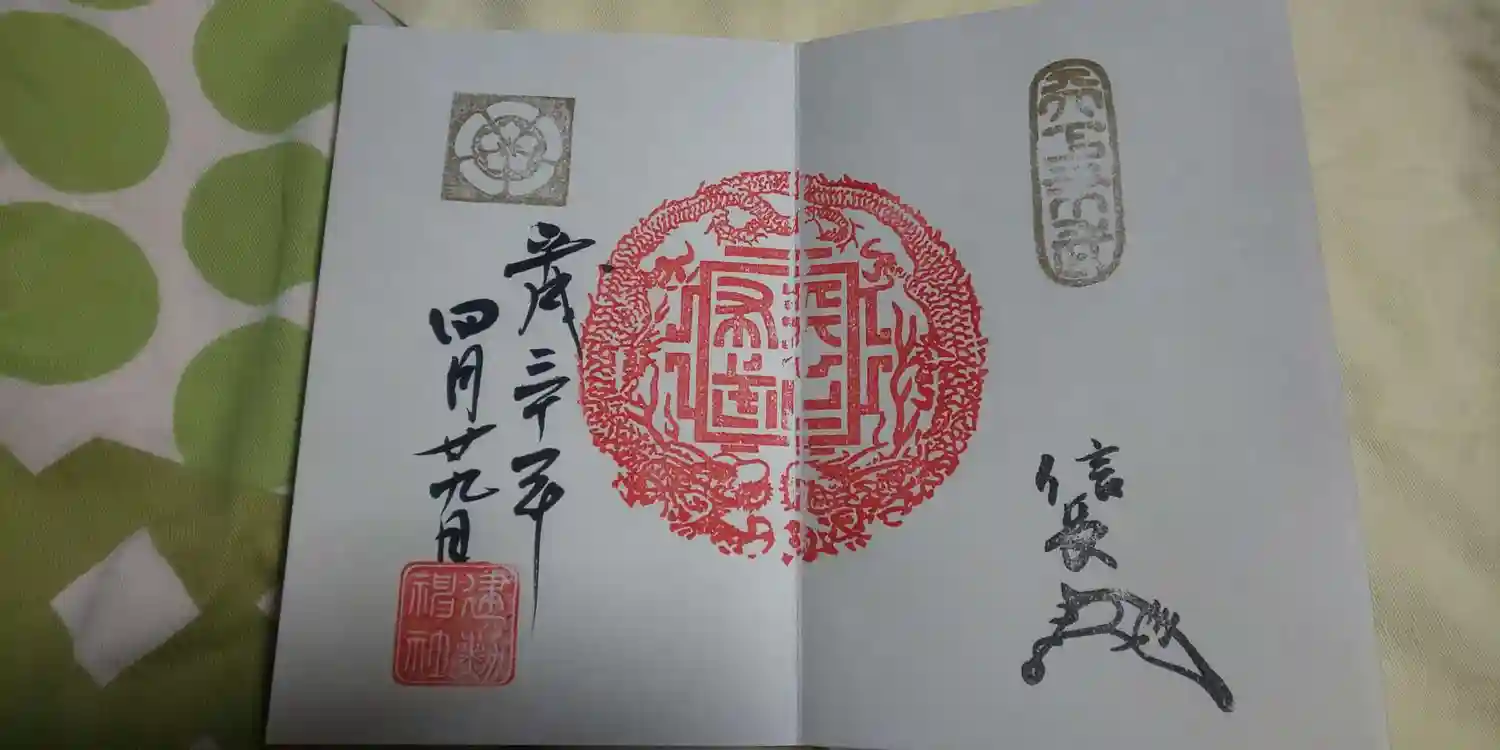 天下布武
信長
天下
布武
平成三十年
四月廿九日
建勲
神社